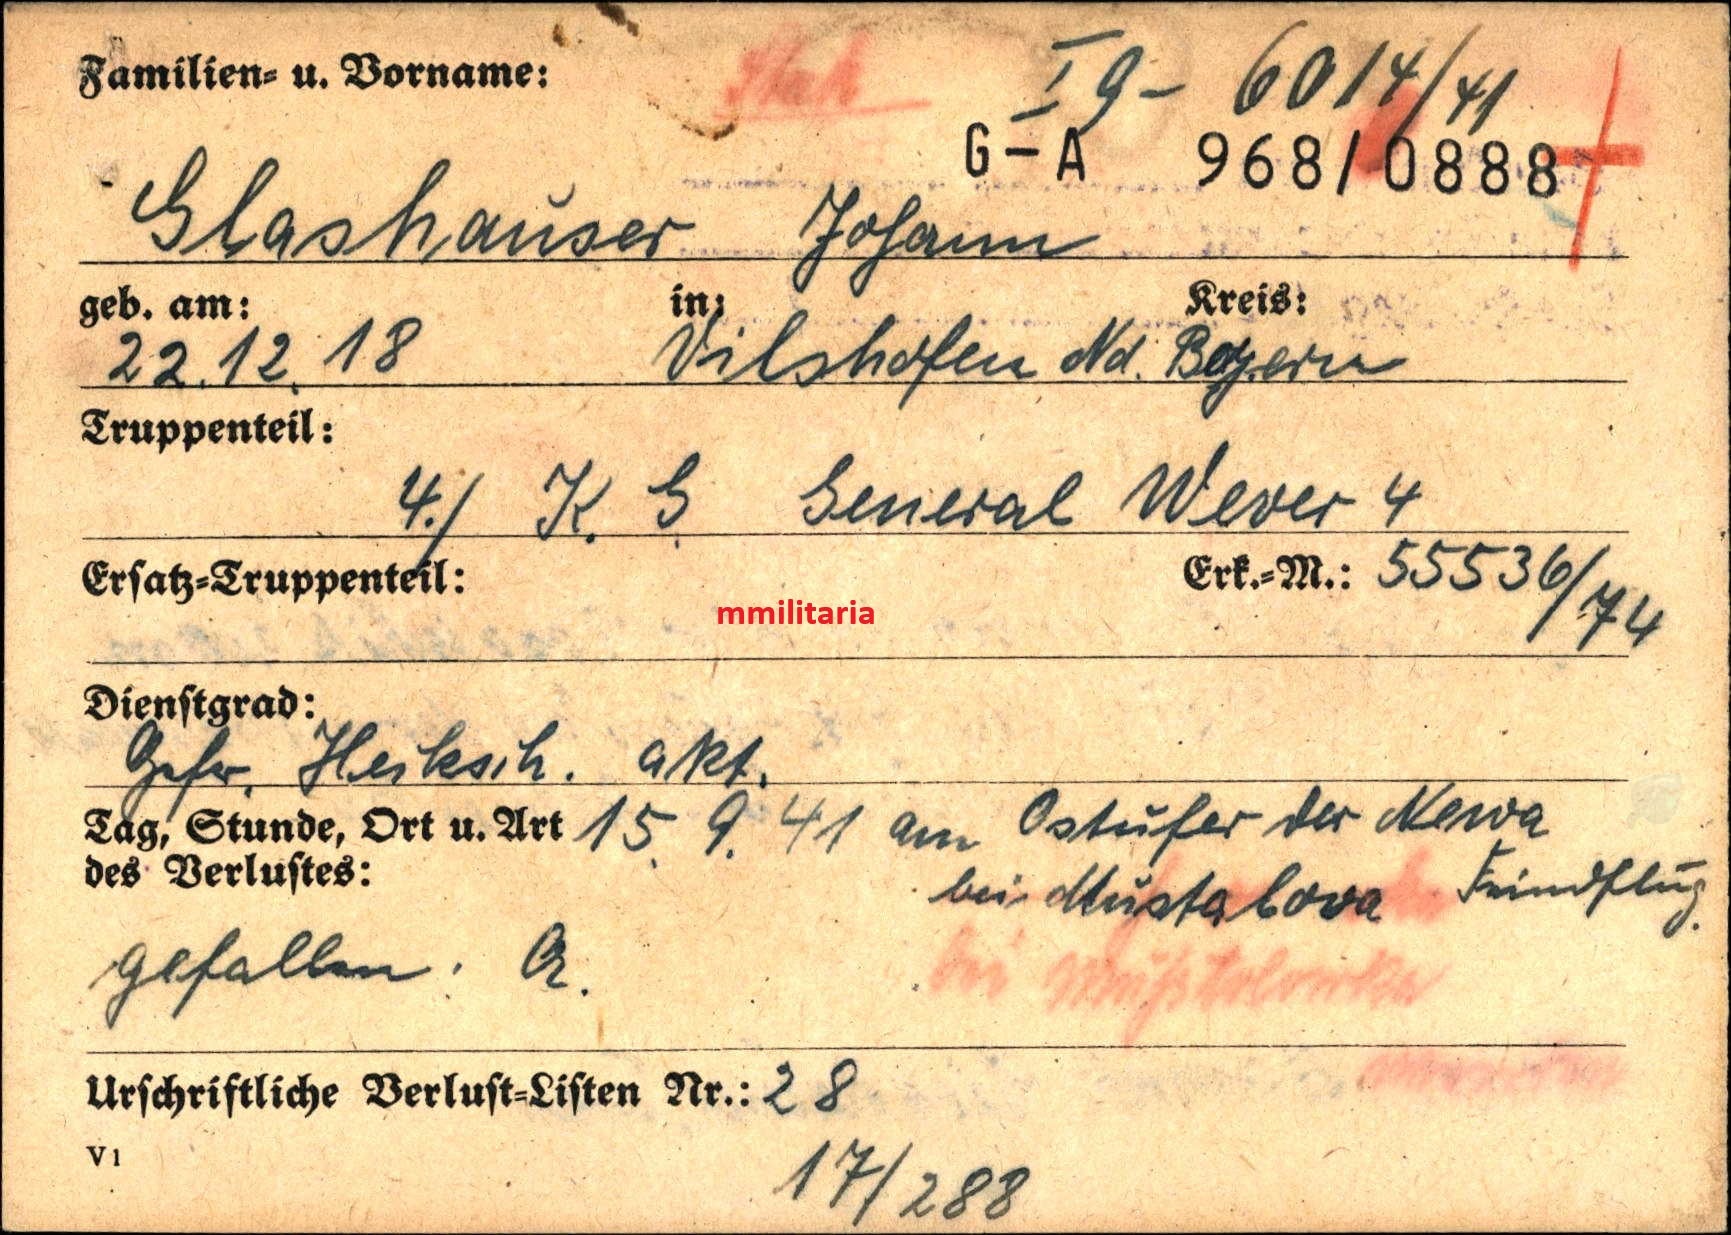 Familien= u. Vorname:
I 9 - 6014/41
G-A 968/0888
Glashauser Johann
geb. am: in: Kreis:
22.12.18 Vilshofen Nd. Bayern
Truppenteil:
4./ K. G. General Wever 4
Ersatz=Truppenteil: Erk.=M.: 55536/74
mmilitaria
Dienstgrad:
Gefr. akt.
Tag, Stunde, Ort u. Art 15.9.41 am Ostufer der Newa
des Verlustes: bei Mustalova Feindflug.
gefallen.
bei
Urschriftliche Verlust=Listen Nr.: 28
V 1
17/288